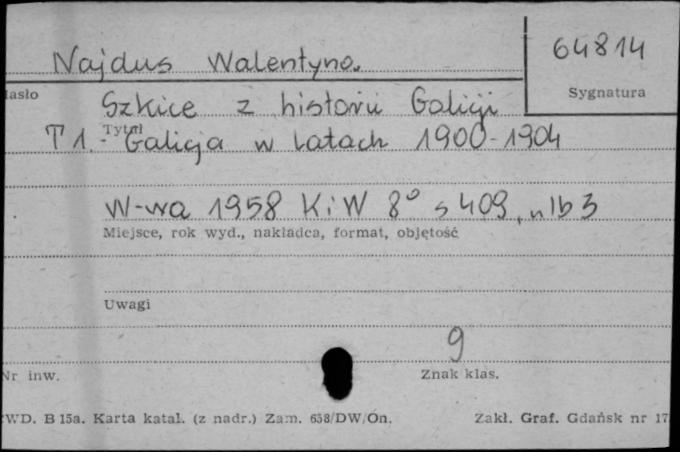 64814
Najdus Walentyna.
Hasło
Sygnatura
Szkice z historii Galicji
Tytuł
T 1. - Galicja w latach 1900-1904
W-wa 1958 KiW 8° s 409, nlb 3
Miejsce, rok wyd., nakładca, format, objętość
Uwagi
9
Nr inw.
Znak klas.
WD. B 15a. Karta katal. (z nadr.) Zam. 658/DW/On.
Zakł. Graf. Gdańsk nr 17